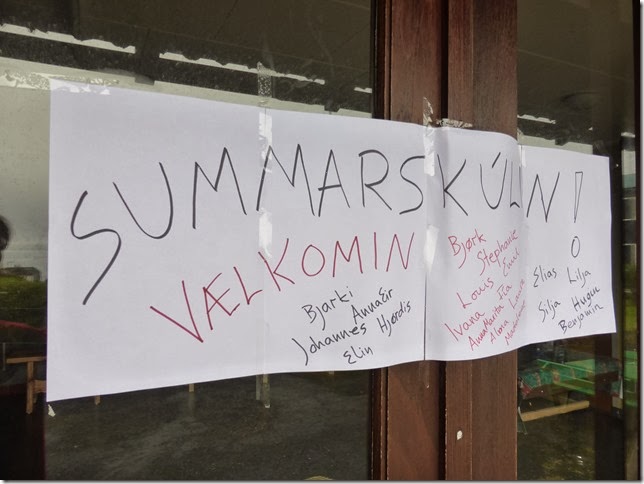 SUMMARSKÚLIN!
VÆLKOMIN
Bjarki
AnnaEir
Johannes Hjørdis
Elin
Bjørk
Stephanie
Louis Emil
Ivana
AnnaMarita
Laura
Elias Lilja
Silja Hugin
Benjamin